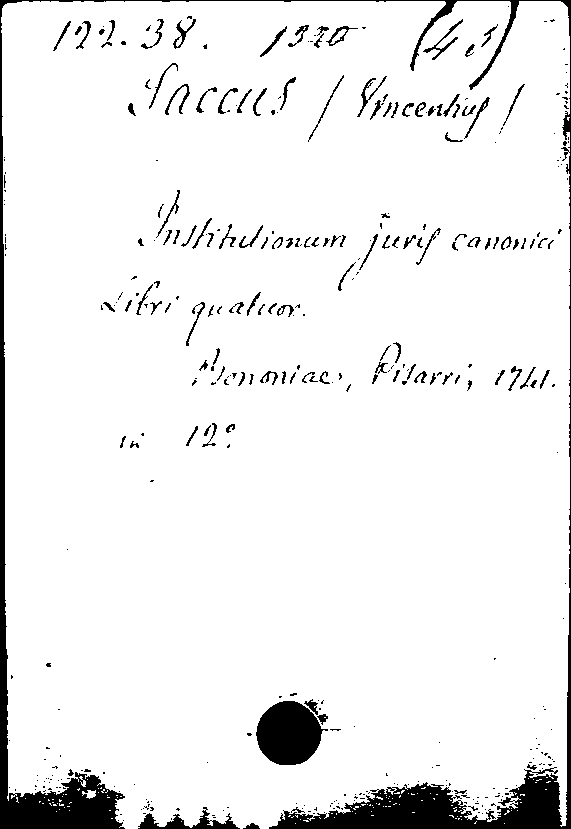 122.38. 1320 (4 s)
Saccus / Vincentius /
Institutionum juris canonici
Libri quatuor.
Bononiae, Pisarri, 1741.
in 12º